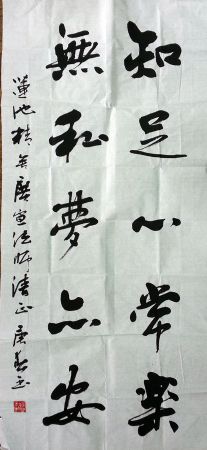 知足心常樂
無私夢亦安
蓮池精舍廣宣法師請正